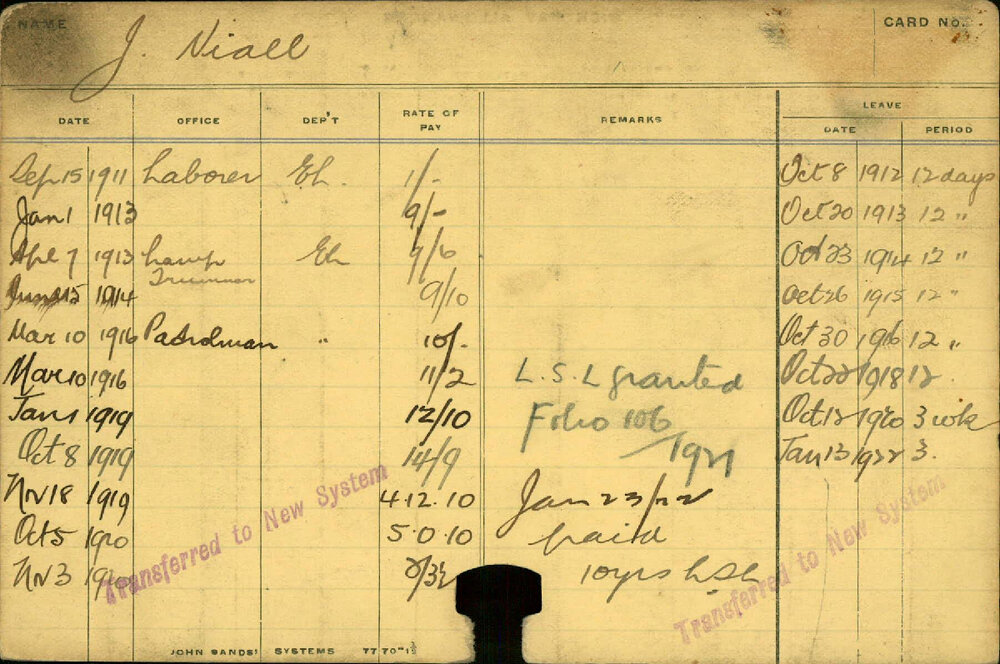 NAME
J. Niall
CARD No.
DATE OFFICE DEP'T RATE OF PAY REMARKS LEAVE
DATE PERIOD
Sep 15 1911 Laborer Eh. 1/- Oct 8 1912 12 days
Jan 1 1913 9/- Oct 20 1913 12 "
Apl 7 1913 Lamp Trimmer Eh 9/6 Oct 23 1914 12 "
June 15 1914 9/10 Oct 26 1915 12 "
Mar 10 1916 Patrolman " 10/- Oct 30 1916 12 "
Mar 10 1916 11/2 L.S.L granted Oct 1918 12
Jan 1 1919 12/10 Folio 106 Oct 12 1920 3 wk
Oct 8 1919 14/9 /1921 Jan 13 1922 3.
Nov 18 1919 4.12.10 Jan 23/22
Oct 5 1920 5.0.10 paid
Nv 3 1920 10 yrs L.S.L
Transferred to New System
Transferred to New System
JOHN SANDS' SYSTEMS 7770